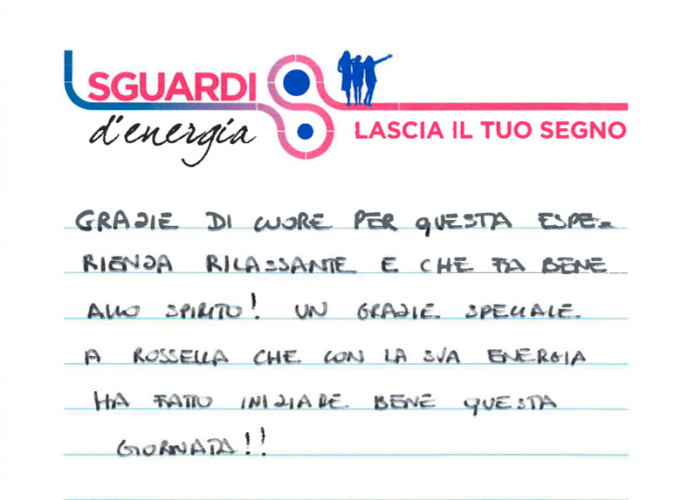 SGUARDI
d'energia
LASCIA IL TUO SEGNO
GRAZIE DI CUORE PER QUESTA ESPE=
RIENZA RILASSANTE E CHE FA BENE
ALLO SPIRITO! UN GRAZIE SPECIALE
A ROSSELLA CHE CON LA SUA ENERGIA
HA FATTO INIZIARE BENE QUESTA
GIORNATA!!